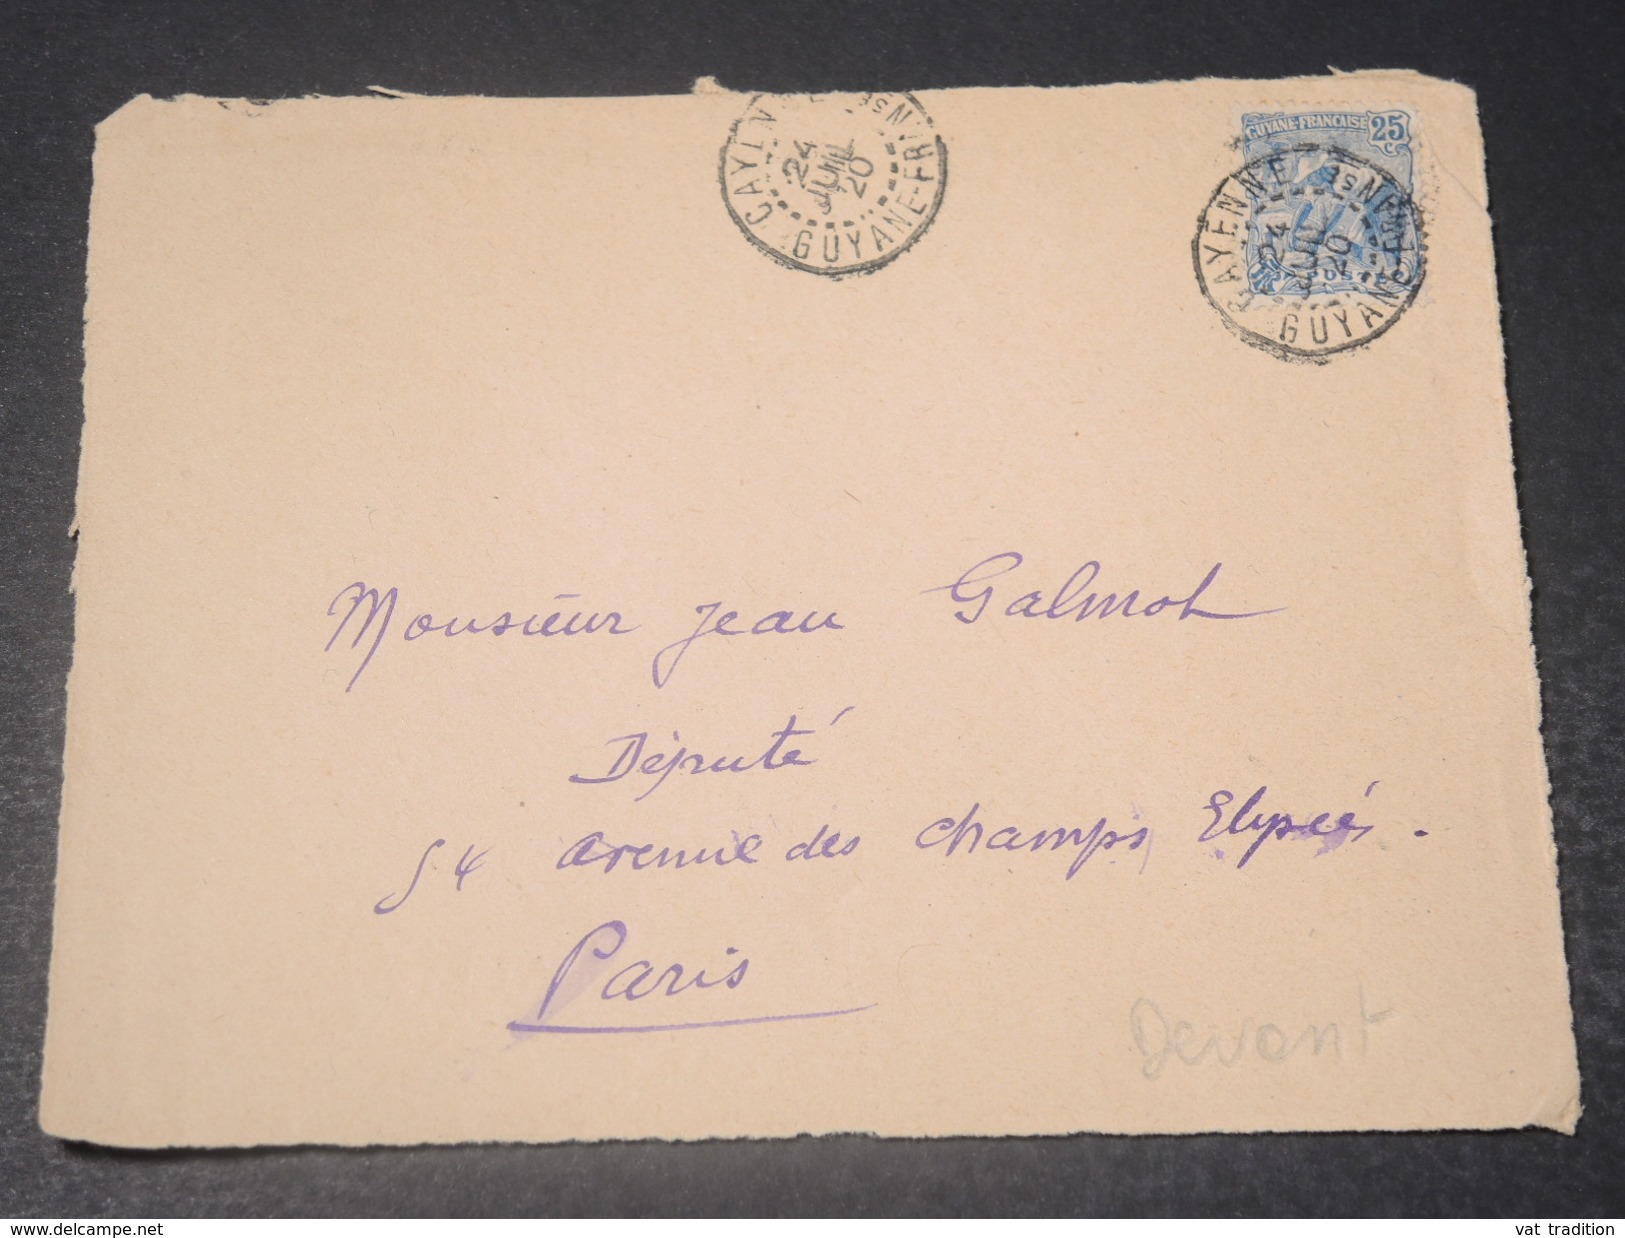 CAYENNE
24
JUIL
20
GUYANE-FR
GUYANE-FRANÇAISE 25 c
POSTES
CAYENNE
24
JUIL
20
GUYANE-FR
Monsieur Jean Galmot
Député
54 avenue des champs Elysées.
Paris
Devant
www.delcampe.net
vat tradition